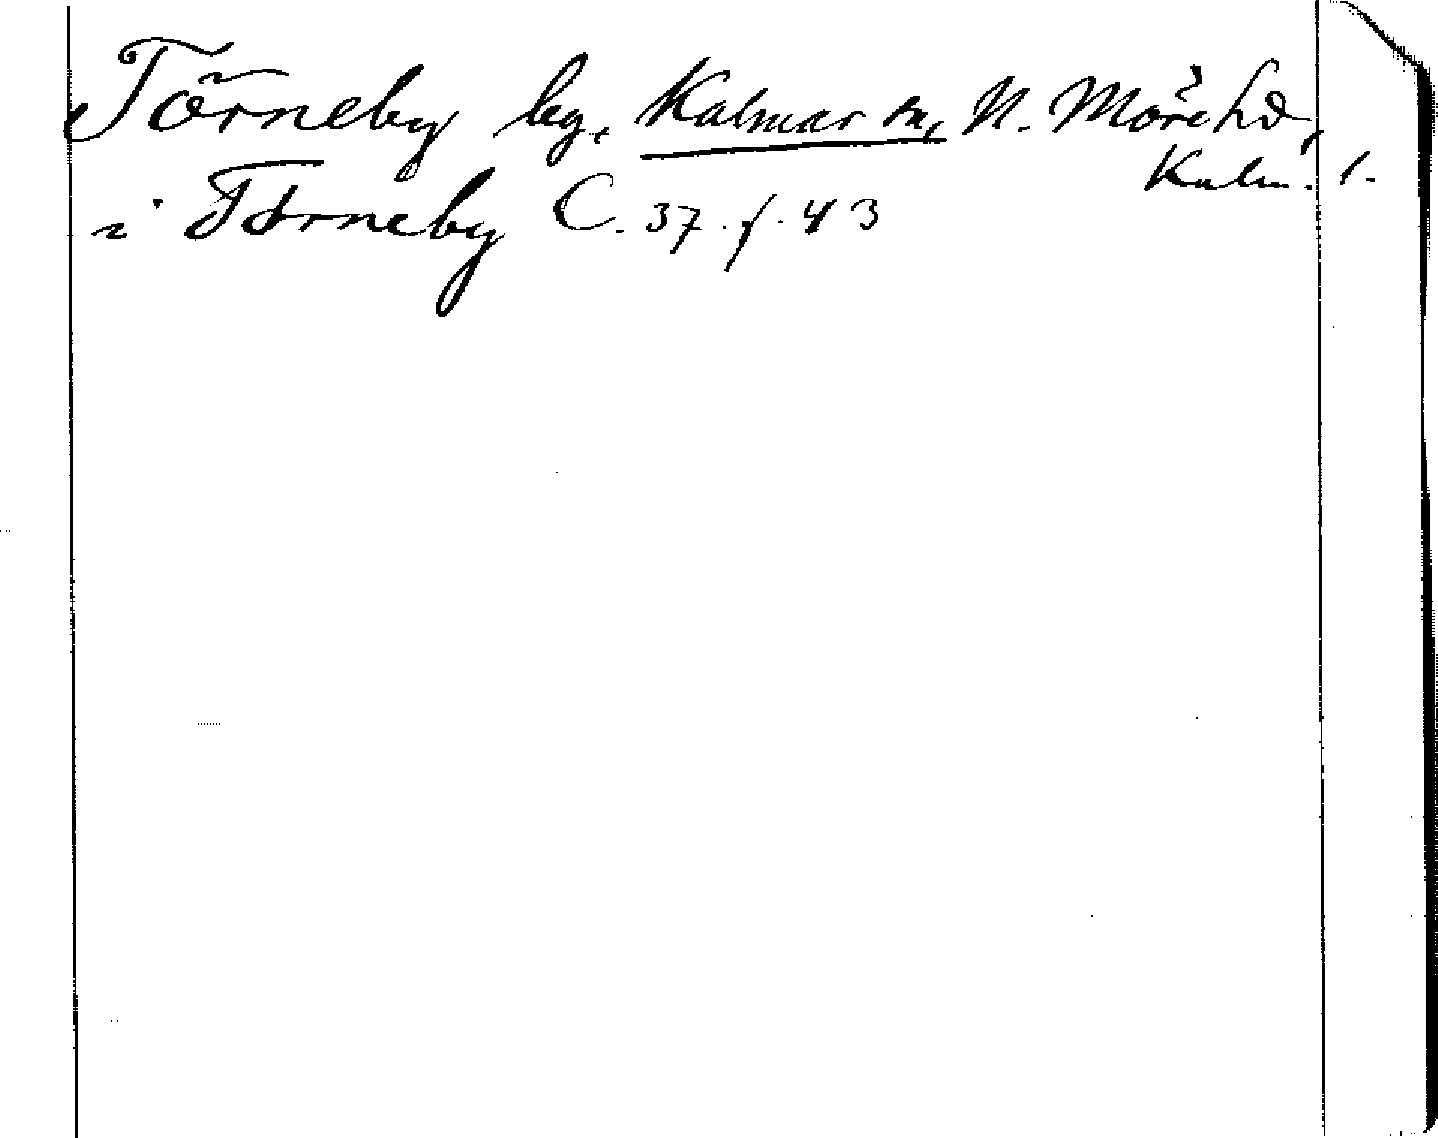 Törneby by, Kalmar sn, N. Möre hd,
Kalm. l.
i Törneby C. 37. f. 43